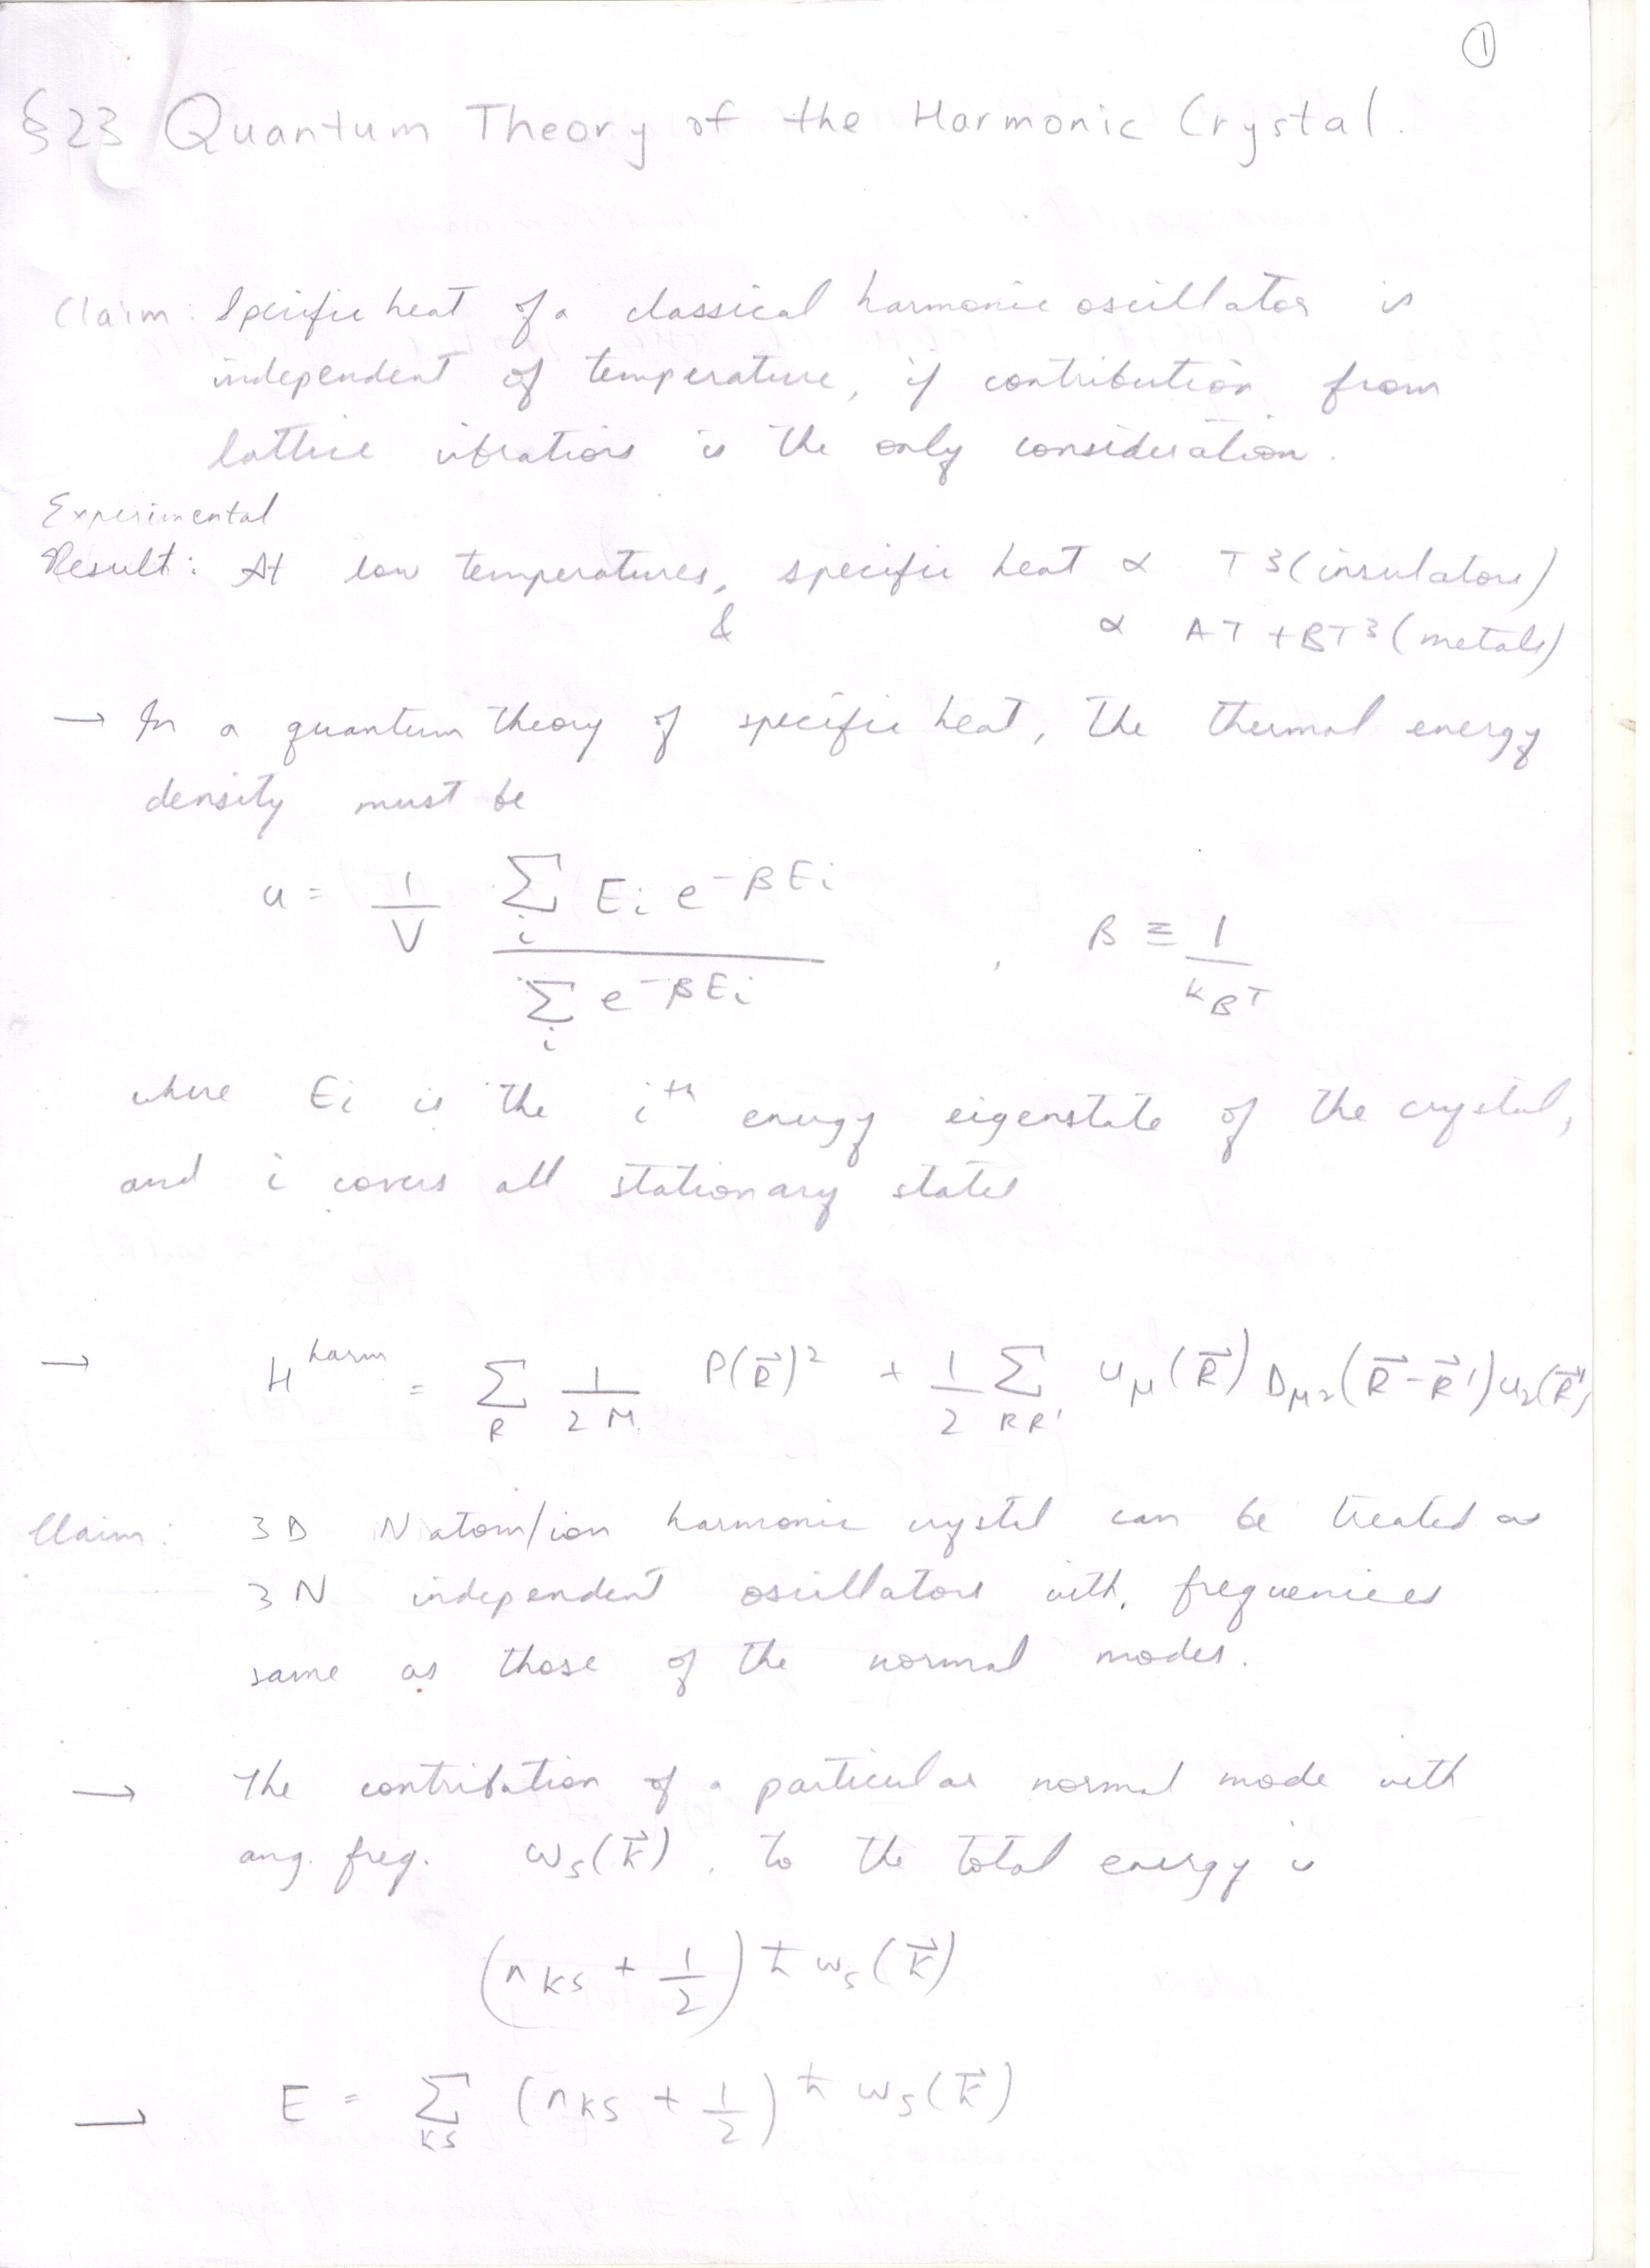 ①
§23 Quantum Theory of the Harmonic Crystal.
Claim: Specific heat of a classical harmonic oscillator is
independent of temperature, if contribution from
lattice vibrations is the only consideration.
Experimental
Result: At low temperatures, specific heat ∝ T³ (insulators)
& ∝ AT + BT³ (metals)
→ In a quantum theory of specific heat, the thermal energy
density must be
u = 1/V Σ_i E_i e^{-βE_i} / Σ_i e^{-βE_i} , β ≡ 1/k_BT
where E_i is the i^th energy eigenstate of the crystal,
and i covers all stationary states
→ H^harm = Σ_R 1/2M P(R⃗)² + 1/2 Σ_RR' u_μ(R⃗) D_μν(R⃗-R⃗')u_ν(R⃗')
Claim: 3D N atom/ion harmonic crystal can be treated as
3N independent oscillators with frequencies
same as those of the normal modes.
→ The contribution of a particular normal mode with
ang. freq. ω_s(k⃗), to the total energy is
(n_ks + 1/2) ħ ω_s(k⃗)
→ E = Σ_ks (n_ks + 1/2) ħ ω_s(k⃗)